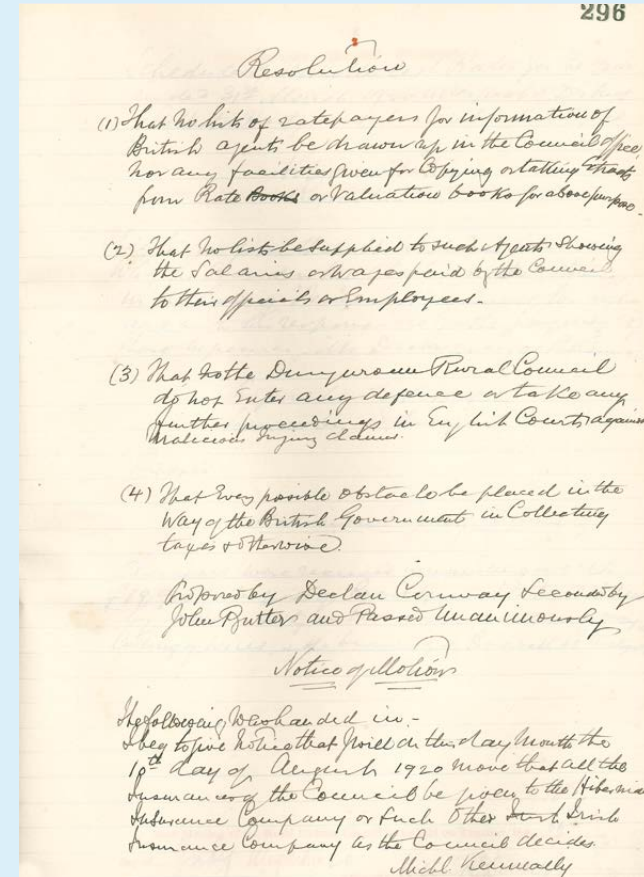 296
Resolution
(1) That no lists of ratepayers for information of
British agents be drawn up in the Council office
nor any facilities given for Copying or taking Extracts
from Rate Books or Valuation books for above purpose
(2) That no lists be supplied to such Agents showing
the Salaries or wages paid by the Council
to their officials or Employees.
(3) That the Dungarvan Rural Council
do not Enter any defence or take any
further proceedings in English Courts against
malicious injury claims.
(4) That Every possible obstacle be placed in the
way of the British Government in Collecting
taxes & otherwise.
Proposed by Declan Conway Seconded by
John Butler and Passed Unanimously
Notice of Motion
The following was handed in.-
I beg to give Notice that I will on this day Month the
10th day of August 1920 move that all the
Insurances of the Council be given to the Hibernian
Insurance Company or Such Other Irish Irish
Insurance Company as the Council decides.
Michl Kenneally